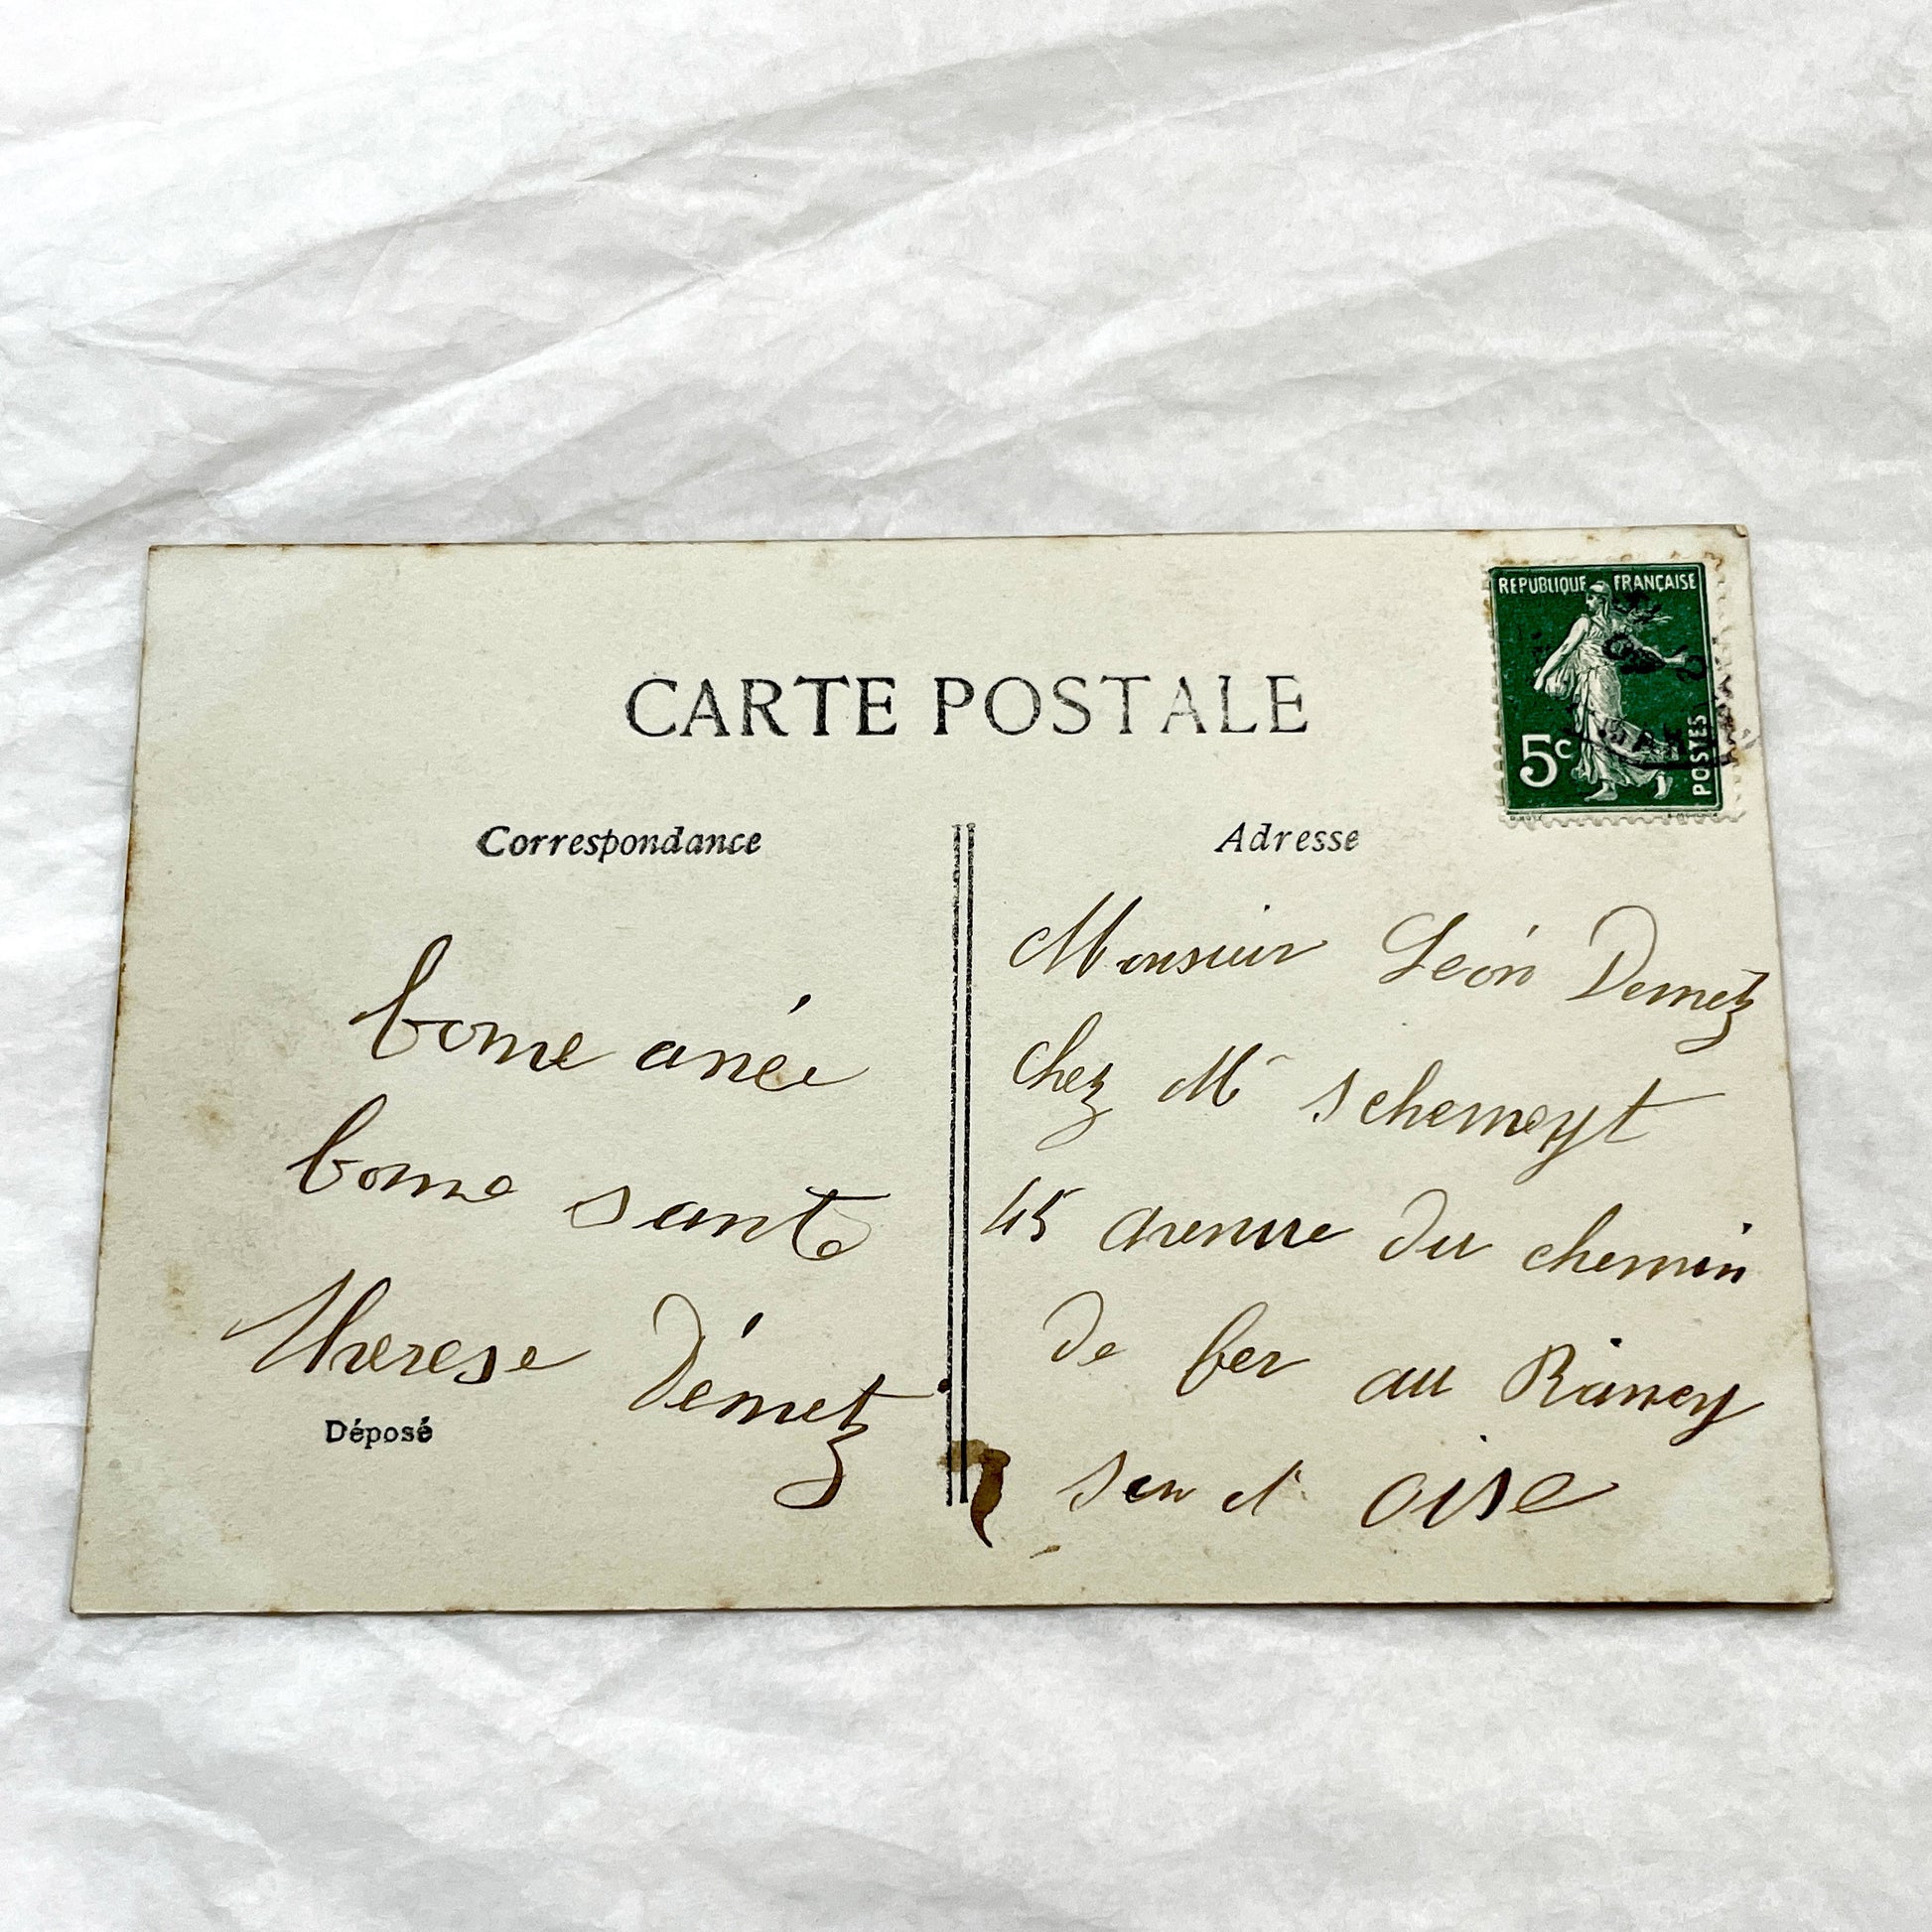 REPUBLIQUE FRANÇAISE
5c
POSTES
CARTE POSTALE
Correspondance
bonne anée
bonne sante
Therese Démetz
Déposé
Adresse
Monsieur Léon Demetz
chez Mr
45 avenue du chemin
de fer au Raincy
oise